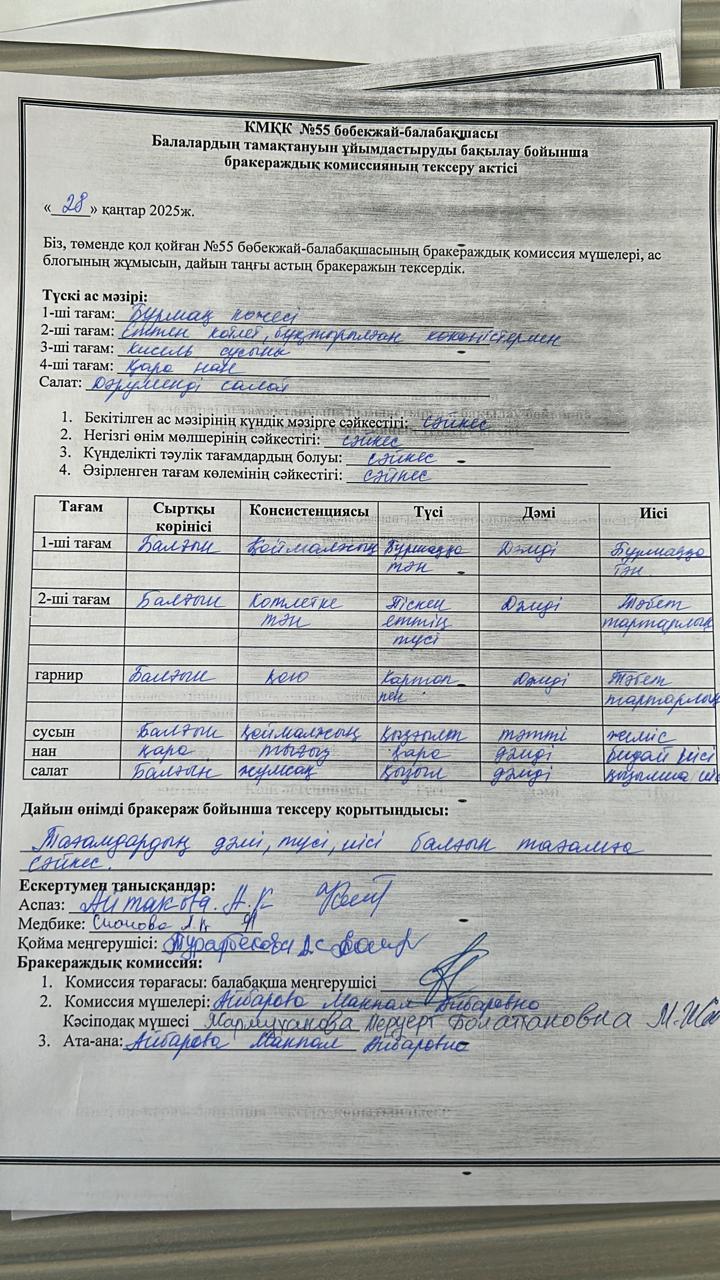 КМҚК №55 бөбекжай-балабақшасы
Балалардың тамақтануын ұйымдастыруды бақылау бойынша
бракераждық комиссияның тексеру актісі
«28» қаңтар 2025ж.
Біз, төменде қол қойған №55 бөбекжай-балабақшасының бракераждық комиссия мүшелері, ас
блогының жұмысын, дайын таңғы астың бракеражын тексердік.
Түскі ас мәзірі:
1-ші тағам: Бұрмаш көжесі
2-ші тағам: Еттен котлет, бұқтырылған көкөністермен
3-ші тағам: Кисель сусыны
4-ші тағам: Қара нан
Салат: Дәруменді салат
1. Бекітілген ас мәзірінің күндік мәзірге сәйкестігі: сәйкес
2. Негізгі өнім мөлшерінің сәйкестігі: сәйкес
3. Күнделікті тәулік тағамдардың болуы: сәйкес
4. Әзірленген тағам көлемінің сәйкестігі: сәйкес
Тағам Сыртқы көрінісі Консистенциясы Түсі Дәмі Иісі
1-ші тағам Балғын Қоймалжың тән Дәмді тән
2-ші тағам Балғын Котлетке тән Піскен еттің түсі Дәмді Тәбет тартарлық
гарнир Балғын қою Картоп Дәмді Тәбет тартарлық
сусын Балғын қоймалжың қызғылт тәтті жеміс
нан қара тығыз қара дәмді бидай иісі
салат Балғын жұмсақ қызыл дәмді қызылша
Дайын өнімді бракераж бойынша тексеру қорытындысы:
Тағамдардың дәмі, түсі, иісі балғын тағамға
сәйкес.
Ескертумен танысқандар:
Аспаз: Айтакова. А.К
Медбике:
Қойма меңгерушісі:
Бракераждық комиссия:
1. Комиссия төрағасы: балабақша меңгерушісі
2. Комиссия мүшелері: Айбарова Макпал Айбаровна
Кәсіподақ мүшесі Болатхановна
3. Ата-ана: Айбарова Макпал Айбаровна